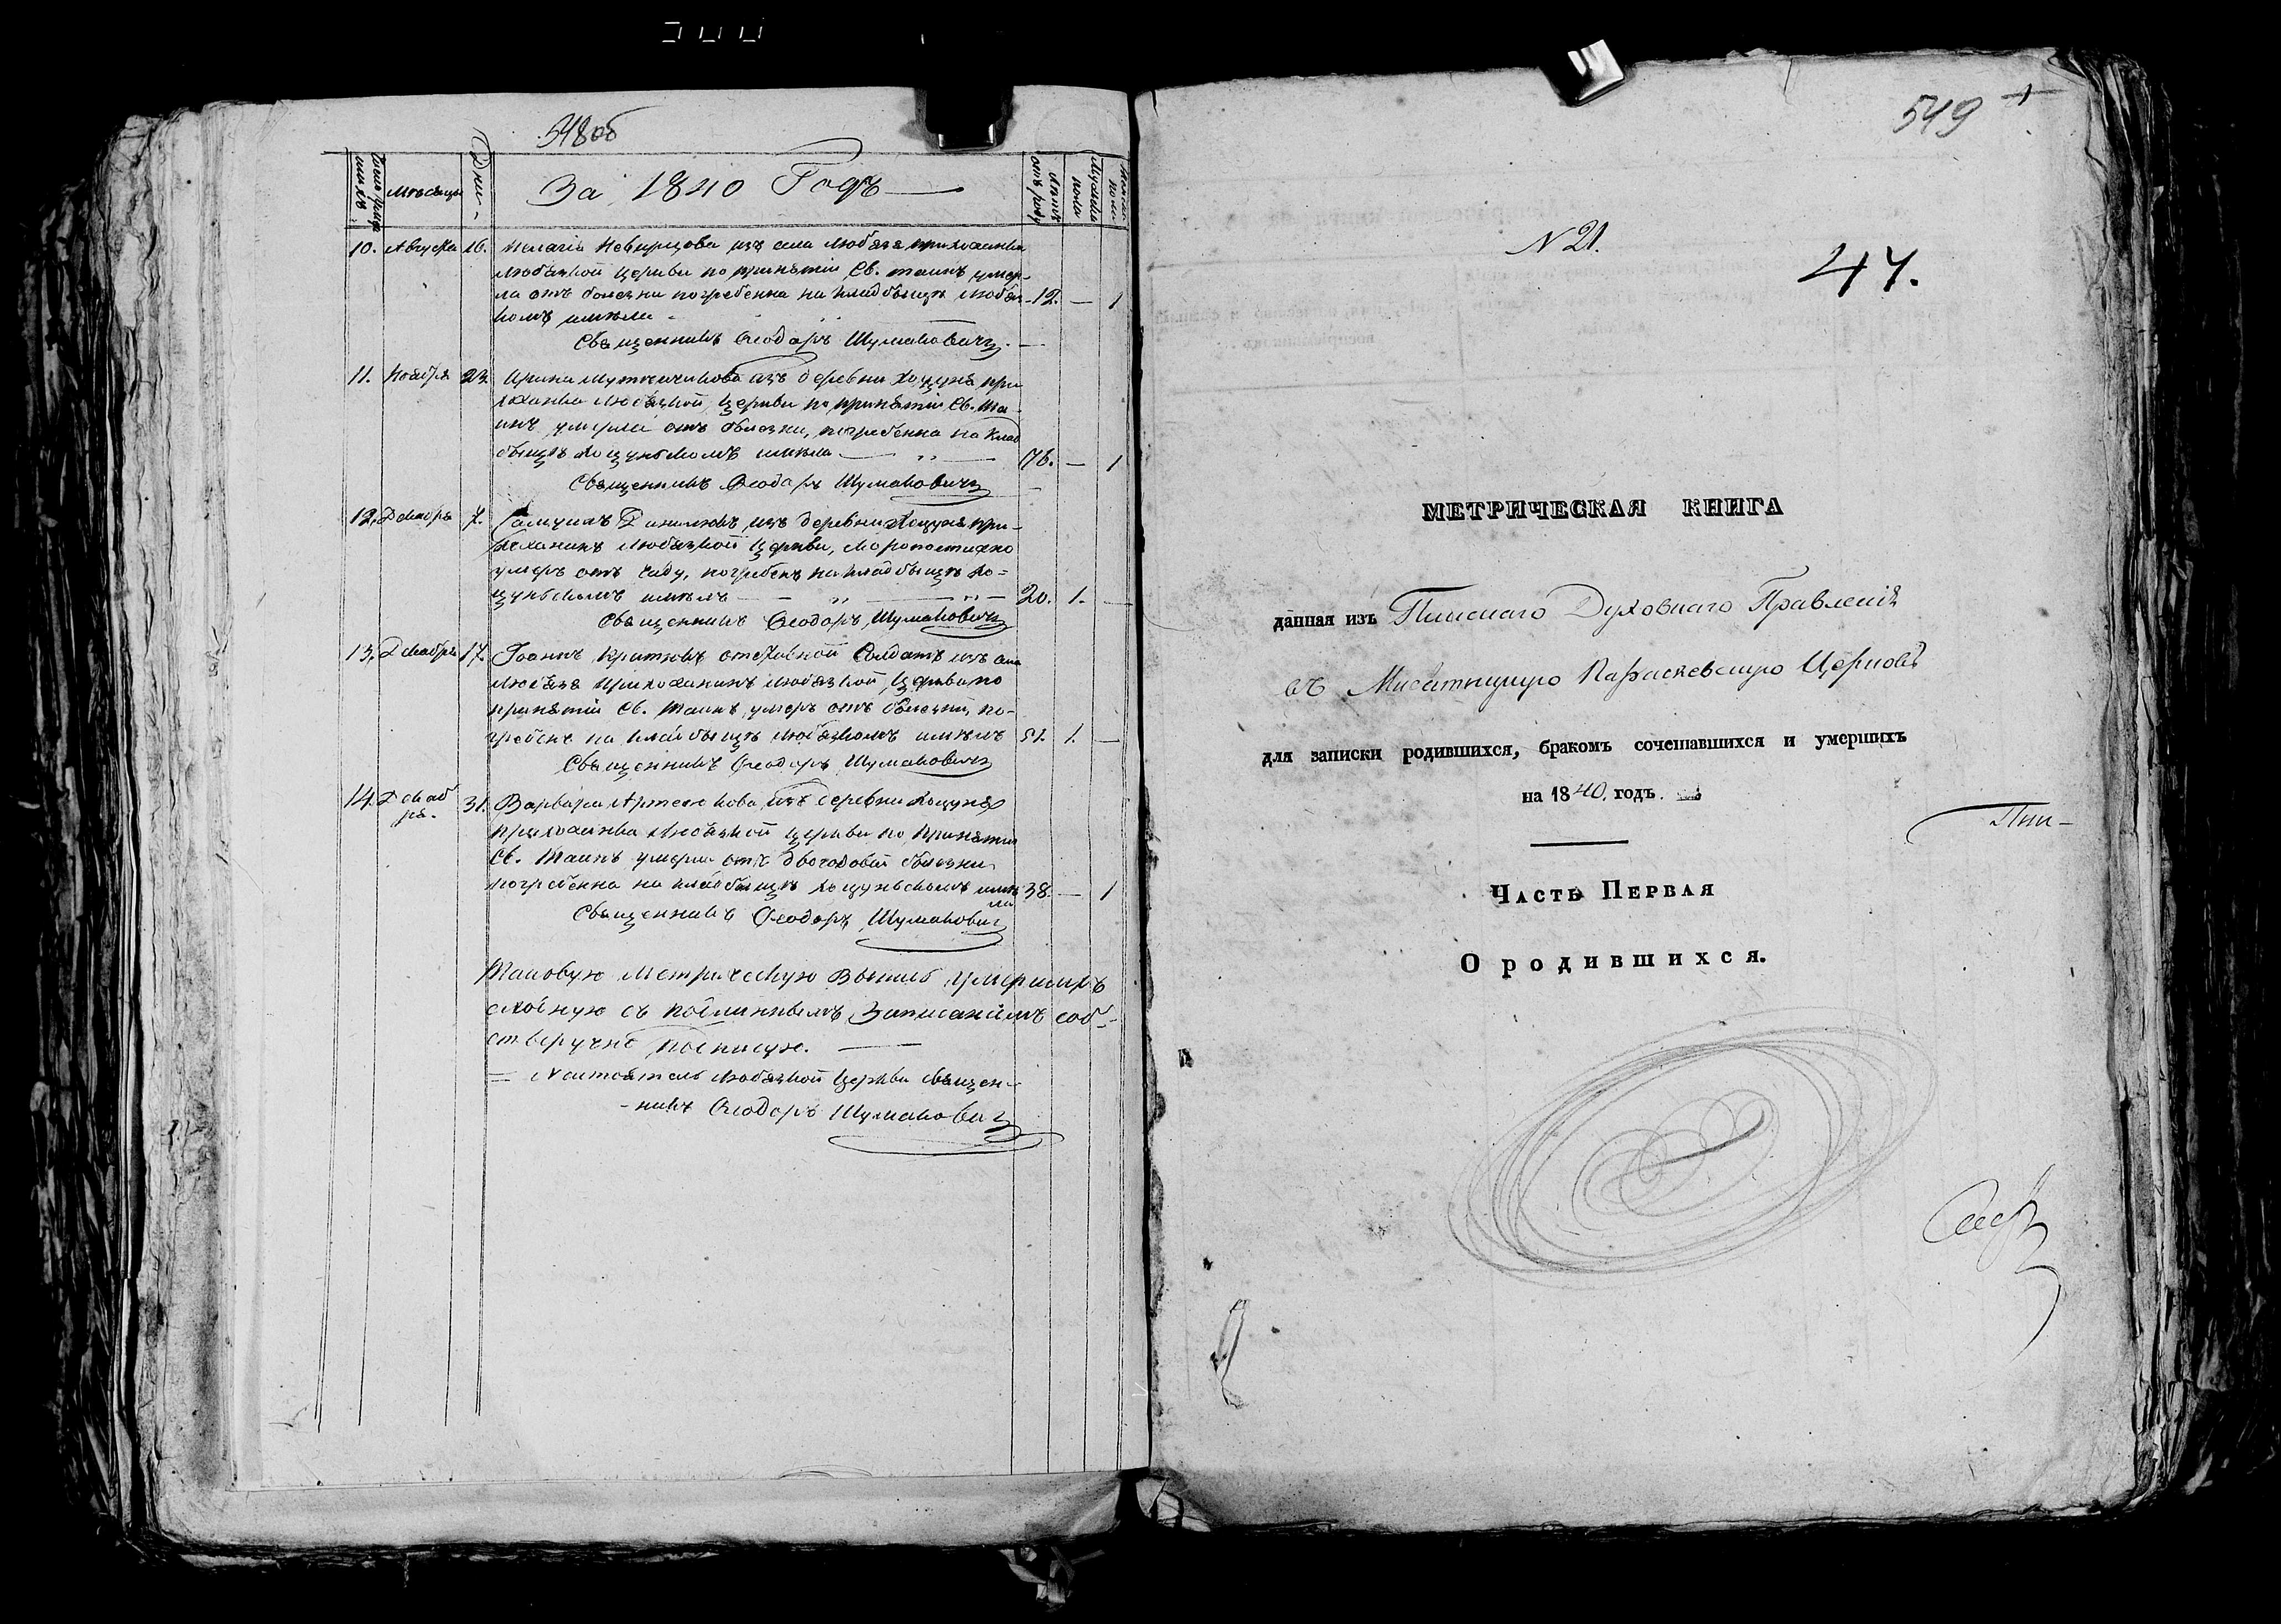 548об
Число умершихъ
Мѣсяцы
Дни
За 1840 Годъ
отъ роду
Мужеска пола
Женска пола
10. Августа 16. Пелагія из села Любязя прихожанка
Любязкой церкви по принятіи Св. таинъ умер-
ла отъ болезни погребенна на кладбыщѣ Любяз- 12. — 1
комъ
Священникъ Ѳеодоръ Шумаковичъ.
11. Ноября 23. Ирина изъ деревни Хоцуня при
хожанка Любязкой Церкви по принятіи Св. Та-
инъ умерла отъ болезни, погребенна на клад
быщѣ Хоцунскомъ 76. — 1
Священникъ Ѳеодоръ Шумаковичъ
12. Декабря 7. Данилюкъ изъ деревни Хоцуня при-
хожанинъ Любязкой Церкви, скоропостижно
умеръ отъ чаду, погребенъ на кладбыщѣ Хо=
цунскомъ 20. 1. —
Священникъ Ѳеодоръ Шумаковичъ
13. Декабря 17. Іоаннъ Солдатъ изъ села
Любязя Прихожанинъ Любязкой Церкви по
принятіи Св. Таинъ, умеръ отъ болезни, по-
гребенъ на кладбыщѣ Любязкомъ 51. 1. —
Священникъ Ѳеодоръ Шумаковичъ
14. Декаб
ря. 31. Варвара из деревни Хоцуня
прихожанка Любязкой церкви по принятіи
Св. Таинъ умерла отъ двогодовой болезни
погребенна на кладбыщѣ Хоцунскомъ 38. — 1
Священникъ Ѳеодоръ Шумаковичъ
Таковую Метрическую Выпись умершихъ
сходную съ подлиннымъ Записаніемъ соб-
ственоручно подписую.
= Настоятель Любязкой Церкви священ-
-никъ Ѳеодоръ Шумаковичъ
549
N 21.
47.
МЕТРИЧЕСКАЯ КНИГА
данная изъ Пинскаго Духовнаго Правленія
въ Параскевскую Церковь
для записки родившихся, бракомъ сочетавшихся и умершихъ
на 1840. годъ.
Пин-
Часть Первая
О родившихся.